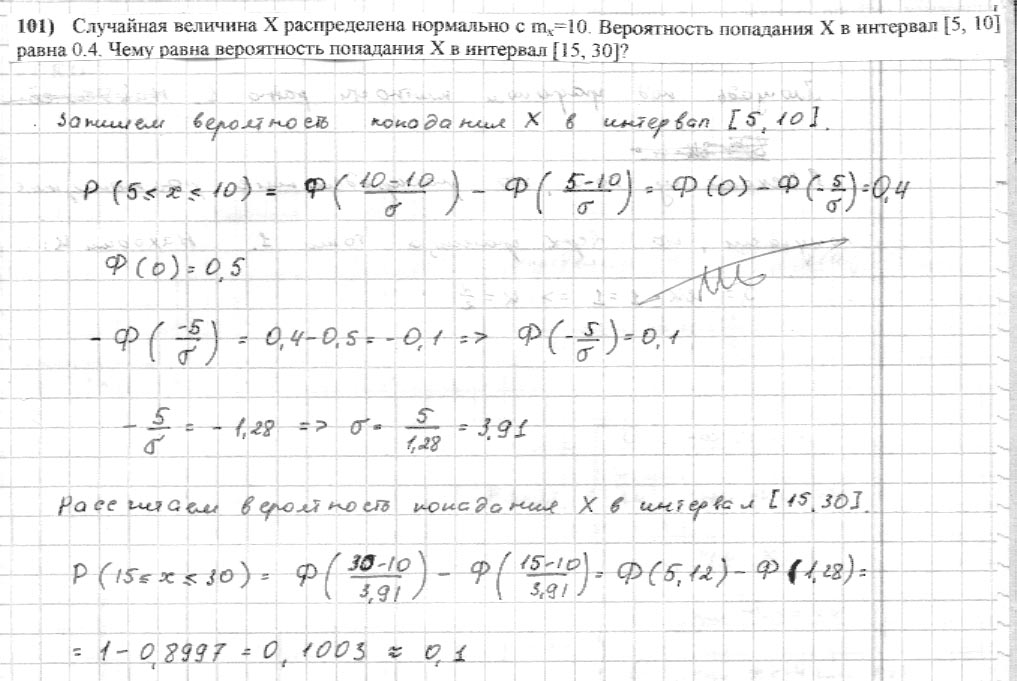 101) Случайная величина X распределена нормально с mx=10. Вероятность попадания X в интервал [5, 10]
равна 0.4. Чему равна вероятность попадания X в интервал [15, 30]?
Запишем вероятность попадания X в интервал [5, 10].
P (5 ≤ x ≤ 10) = Ф((10-10)/σ) - Ф((5-10)/σ) = Ф(0) - Ф(-5/σ) = 0,4
Ф(0) = 0,5
- Ф(-5/σ) = 0,4-0,5 = -0,1 => Ф(-5/σ) = 0,1
-5/σ = -1,28 => σ = 5/1,28 = 3,91
Рассчитаем вероятность попадания X в интервал [15,30].
P (15 ≤ x ≤ 30) = Ф((30-10)/3,91) - Ф((15-10)/3,91) = Ф(5,12) - Ф(1,28) =
= 1 - 0,8997 = 0,1003 ≈ 0,1